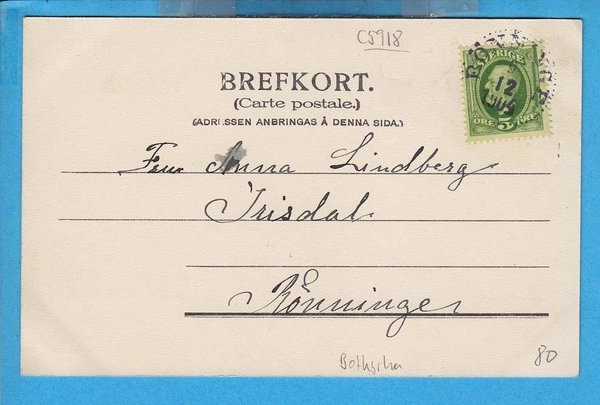 C5918
SVERIGE
12
1904
ÖRE 5 ÖRE
BREFKORT.
(Carte postale.)
(ADRESSEN ANBRINGAS Å DENNA SIDA.)
Fru Anna Lindberg
Irisdal
Rönninge
Bothyrka
80